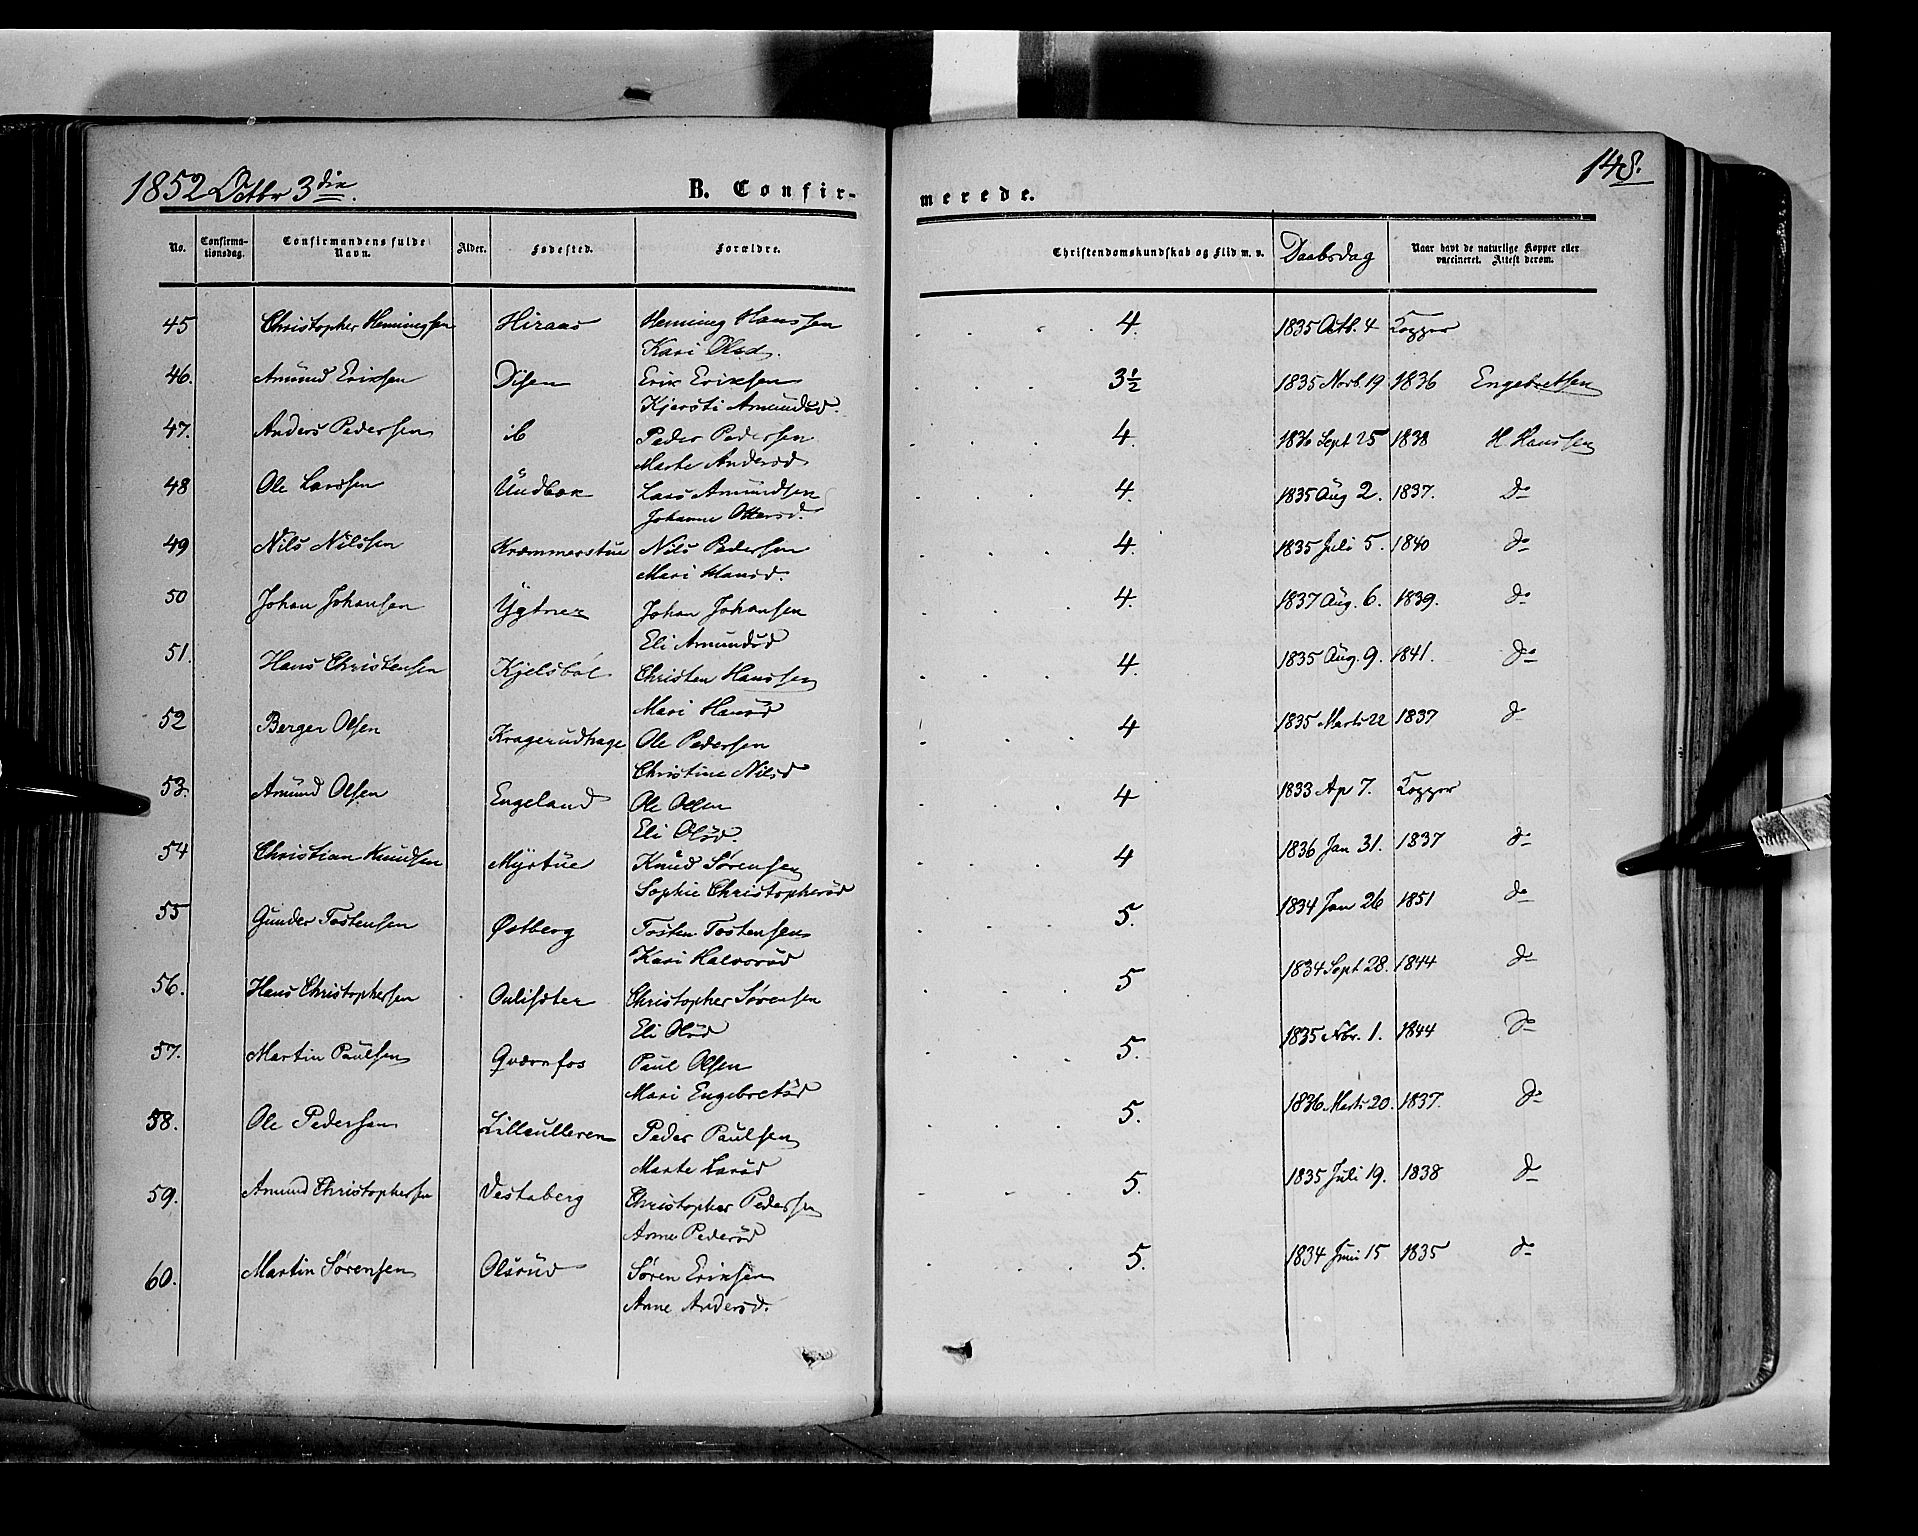 1852 Octbr 3die. B. Confirmerede. 148.
No. Confirmationsdag. Confirmandens fulde Navn. Alder. Fødested. Forældre. Christendomskundskab og Flid m. v. Daabsdag Naar havt de naturlige Kopper eller vaccineret. Attest derom.
45 Christopher Henningsen Hiraas Henning Hanssen 4. 1835 Octb. 4 Kopper
Kari Olsd.
46. Amund Eriksen Disen Erik Eriksen 3½ 1835 Novb. 19 1836 Engebretsen
Kjersti Amundsd.
47. Anders Pedersen ib Peder Pedersen 4. 1836 Sept 25 1838 H. Hanssen
Marte Andersd
48 Ole Larssen Undbæk Lars Amundsen 4. 1835 Aug 2. 1837. Do
Johanne Ottersd.
49 Nils Nilssen Krommerstue Nils Pedersen 4. 1835 Juli 5. 1840 do
Mari Hansd.
50 Johan Johansen Ygtner Johan Johansen 4. 1837 Aug. 6. 1839. do
Eli Amundsd
51. Hans Christensen Kjelsbøl Christen Hanssen 4. 1835 Aug. 9. 1841. do
Mari Hansd
52 Berger Olsen Kragerudhage Ole Pedersen 4 1835 Marts 22 1837 do
Christine Nilsd
53. Amund Olsen Engeland Ole Olsen 4 1833 Ap 7. Kopper
Eli Olsd.
54 Christian Knudsen Myrstue Knud Sørensen 4 1836 Jan 31. 1837 do
Sophie Christophersd
55 Gunder Tostensen Østberg Tosten Tostensen 5. 1834 Jan 26 1851 do
Kari Halvorsd
56. Hans Christophersen Oulisæter Christopher Sørensen 5 1834 Sept 28. 1844 do
Eli Olsd
57. Martin Paulsen Qvernfos Paul Olsen 5. 1835 Nbr. 1. 1844 do
Mari Engebretsd
58. Ole Pedersen Lilleulleren Peder Paulsen 5. 1836 Marts 20. 1837. do
Marte Larsd
59. Amund Christophersen Vestaberg Christopher Pedersen 5. 1835 Juli 19. 1838 do
Anne Pedersd
60. Martin Sørensen Olsrud Søren Eriksen 5. 1834 Juni 15 1835 do
Anne Andersd.